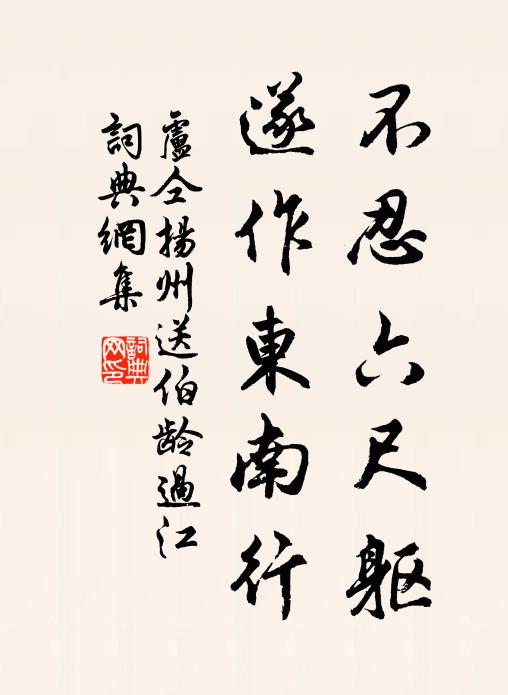 不忍六尺軀
遂作東南行
盧仝揚州送伯龄過江
詞典網集
詞典網印